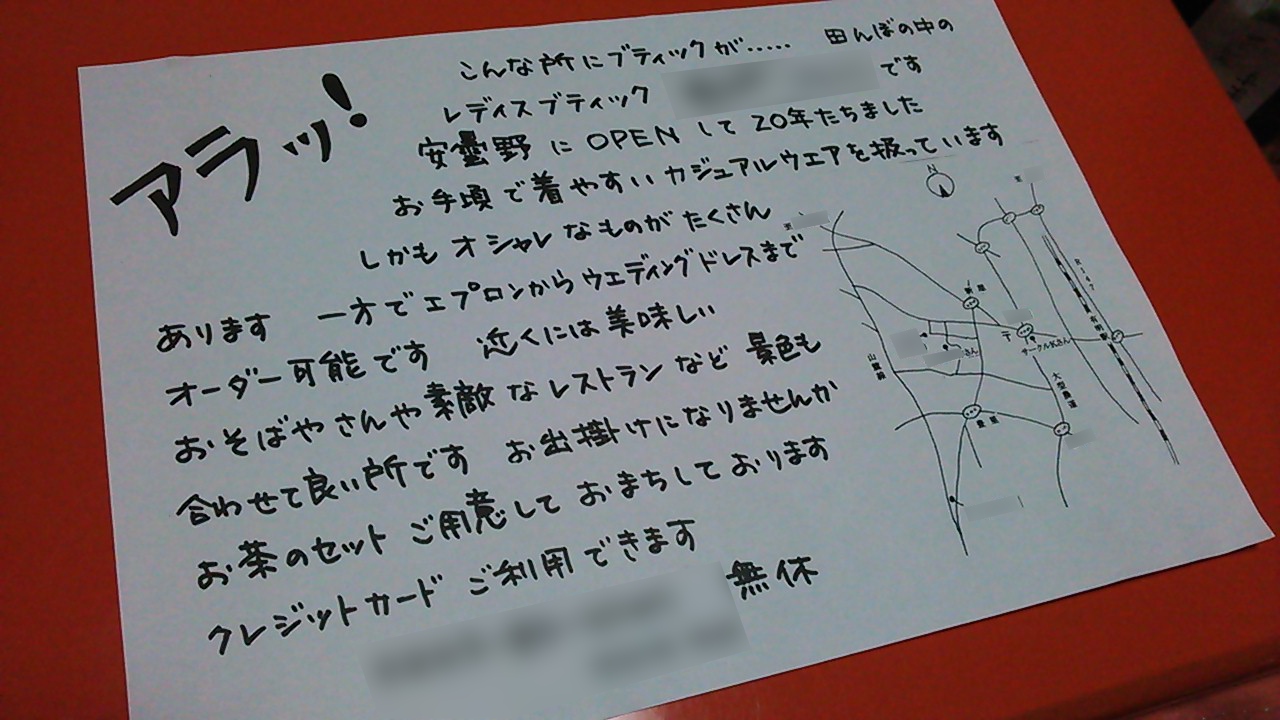 アラッ!
こんな所にブティックが..... 田んぼの中の
レディスブティック です
安曇野に OPEN して 20年たちました
お手頃で着やすいカジュアルウエアを扱っています
しかも オシャレなものが たくさん
あります 一方でエプロンからウェディングドレスまで
オーダー可能です 近くには美味しい
おそばやさんや素敵なレストランなど 景色も
合わせて良い所です お出掛けになりませんか
お茶のセット ご用意して おまちしております
クレジットカード ご利用できます
無休
N
サークルKさん
さん
山麓線